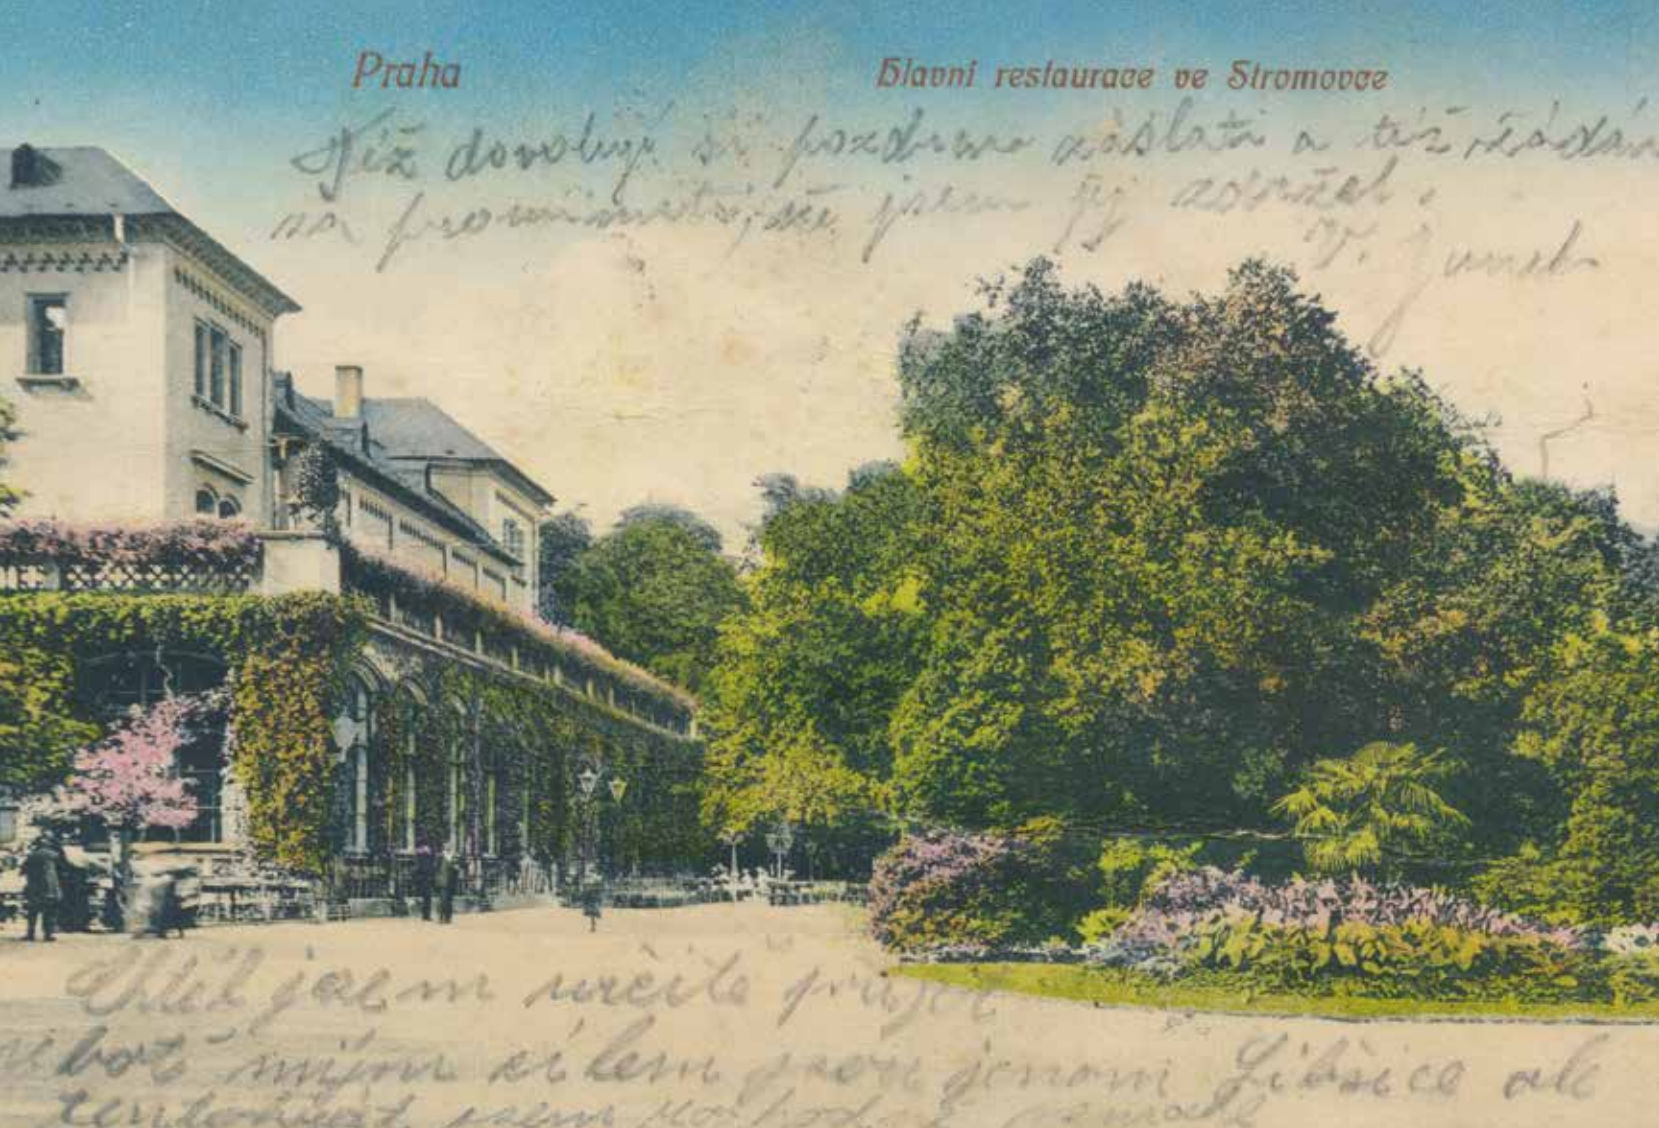 Praha
Hlavní restaurace ve Stromovce
Též dovoluji si pozdrav zaslati a též žádám
za prominutí, že jsem jej zdržel.
Chtěl jsem určitě přijet
neboť mým cílem jsou jenom Libšice ale
tentokrát jsem